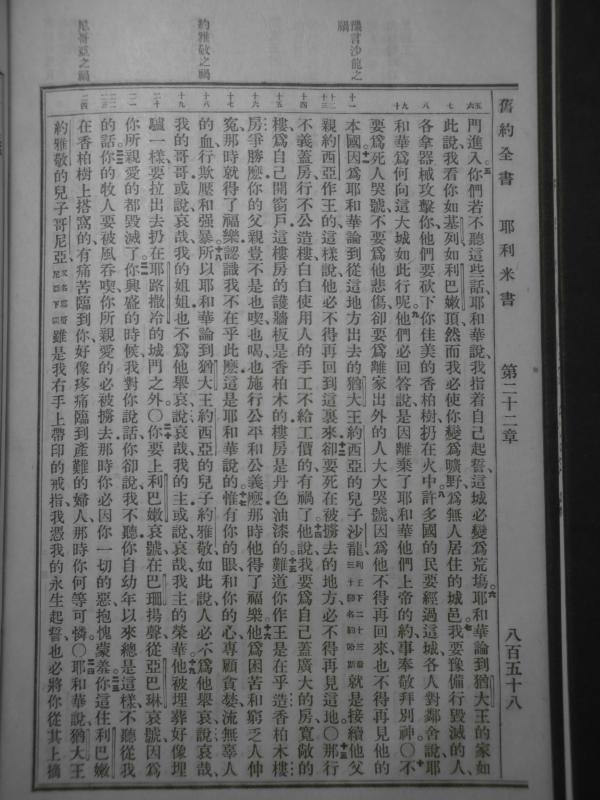 舊約全書 耶利米書 第二十二章 八百五十八
言沙龍之
禍
約雅敬之禍
門進入你們若不聽這些話耶和華說我指着自己起誓這城必變爲荒塲耶和華論到猶大王的家如
此說我看你如基列如利巴嫩頂然而我必使你變爲曠野爲無人居住的城邑我要豫備行毀滅的人
各拿器械攻擊你他們要砍下你佳美的香柏樹扔在火中許多國的民要經過這城各人對鄰舍說耶
和華爲何向這大城如此行呢他們必回答說是因離棄了耶和華他們上帝的約事奉敬拜別神○不
要爲死人哭號不要爲他悲傷卻要爲離家出外的人大大哭號因爲他不得再回來也不得再見他的
本國因爲耶和華論到從這地方出去的猶大王約西亞的兒子沙龍列王下二十三章三十節名約哈斯就是接續他父
親約西亞作王的這樣說他必不得再回到這裏來卻要死在被擄去的地方必不得再見這地○那行
不義蓋房行不公造樓白白使用人的手工不給工價的有禍了他說我要爲自己蓋廣大的房寬敞的
樓爲自己開窗戶這樓房的護牆板是香柏木的樓房是丹色油漆的難道你作王是在乎造香柏木樓
房爭勝麽你的父親豈不是也喫也喝也施行公平和公義麽那時他得了福樂他爲困苦和窮乏人伸
冤那時就得了福樂認識我不在乎此麽這是耶和華說的惟有你的眼和你的心專顧貪婪流無辜人
的血行欺壓和強暴所以耶和華論到猶大王約西亞的兒子約雅敬如此說人必不爲他舉哀說哀哉
我的哥哥或說哀哉我的姐姐也不爲他舉哀說哀哉我的主或說哀哉我主的榮華他被埋葬好像埋
驢一樣要拉出去扔在耶路撒冷的城門之外○你要上利巴嫩哀號在巴珊揚聲從亞巴琳哀號因爲
你所親愛的都毀滅了你興盛的時候我對你說話你卻說我不聽你自幼年以來總是這樣不聽從我
的話你的牧人要被風吞喫你所親愛的必被擄去那時你必因你一切的惡抱愧蒙羞你這住利巴嫩
在香柏樹上搭窩的有痛苦臨到你好像疼痛臨到產難的婦人那時你何等可憐○耶和華說猶大王
約雅敬的兒子哥尼亞雖是我右手上帶印的戒指我憑我的永生起誓也必將你從其上摘